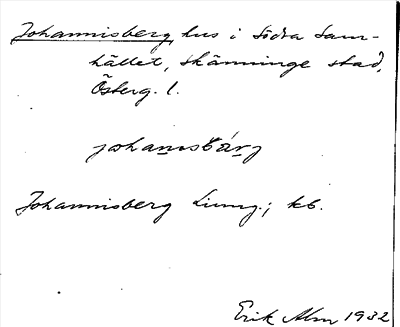 Johannisberg, hus i Södra Sam-
hället, Skänninge stad,
Österg. l.
johanisbärj
Johannisberg Ljung.; kb.
Erik Alm 1932